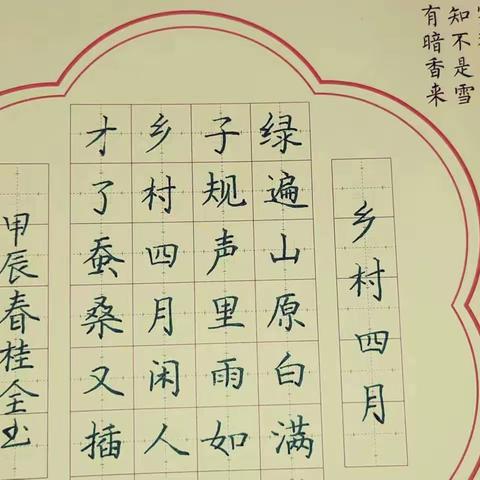 知不是雪
有暗香来
乡村四月
绿遍山原白满
子规声里雨如
乡村四月闲人
才了蚕桑又插
甲辰春桂全